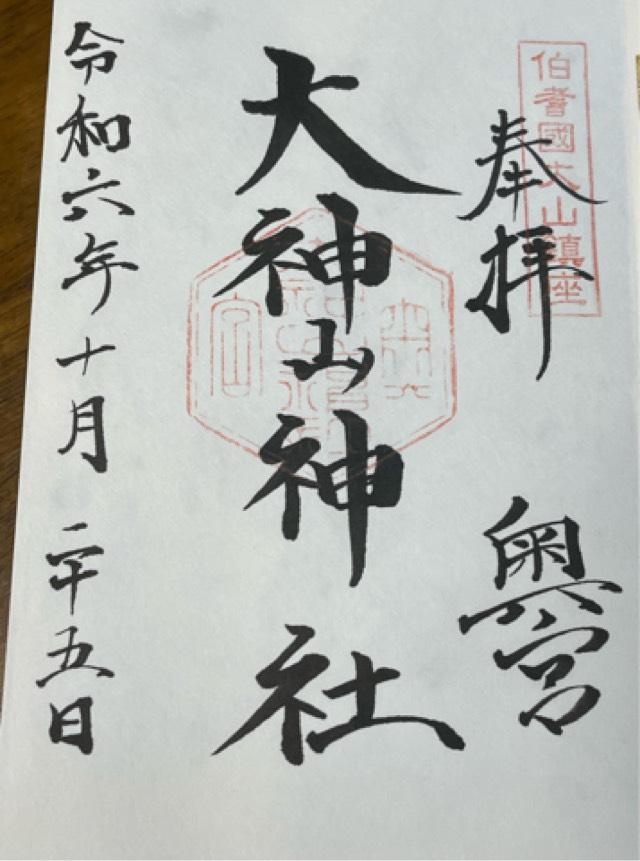 伯耆國大山鎮座
奉拝
奥宮
大神山神社
令和六年十月二十五日